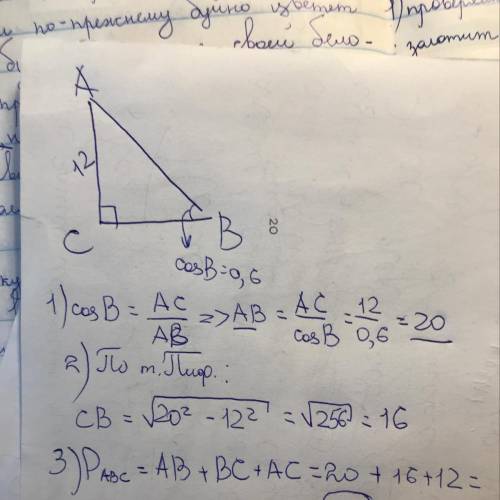 по-прежнему буйно цветет 1) провер
своей бело- золотит
A
12
C
B
20
cosB=0,6
1) cosB = AC/AB => AB = AC/cosB = 12/0,6 = 20
2) По т. Пиф.:
CB = √20² - 12² = √256 = 16
3) P_ABC = AB + BC + AC = 20 + 16 + 12 =